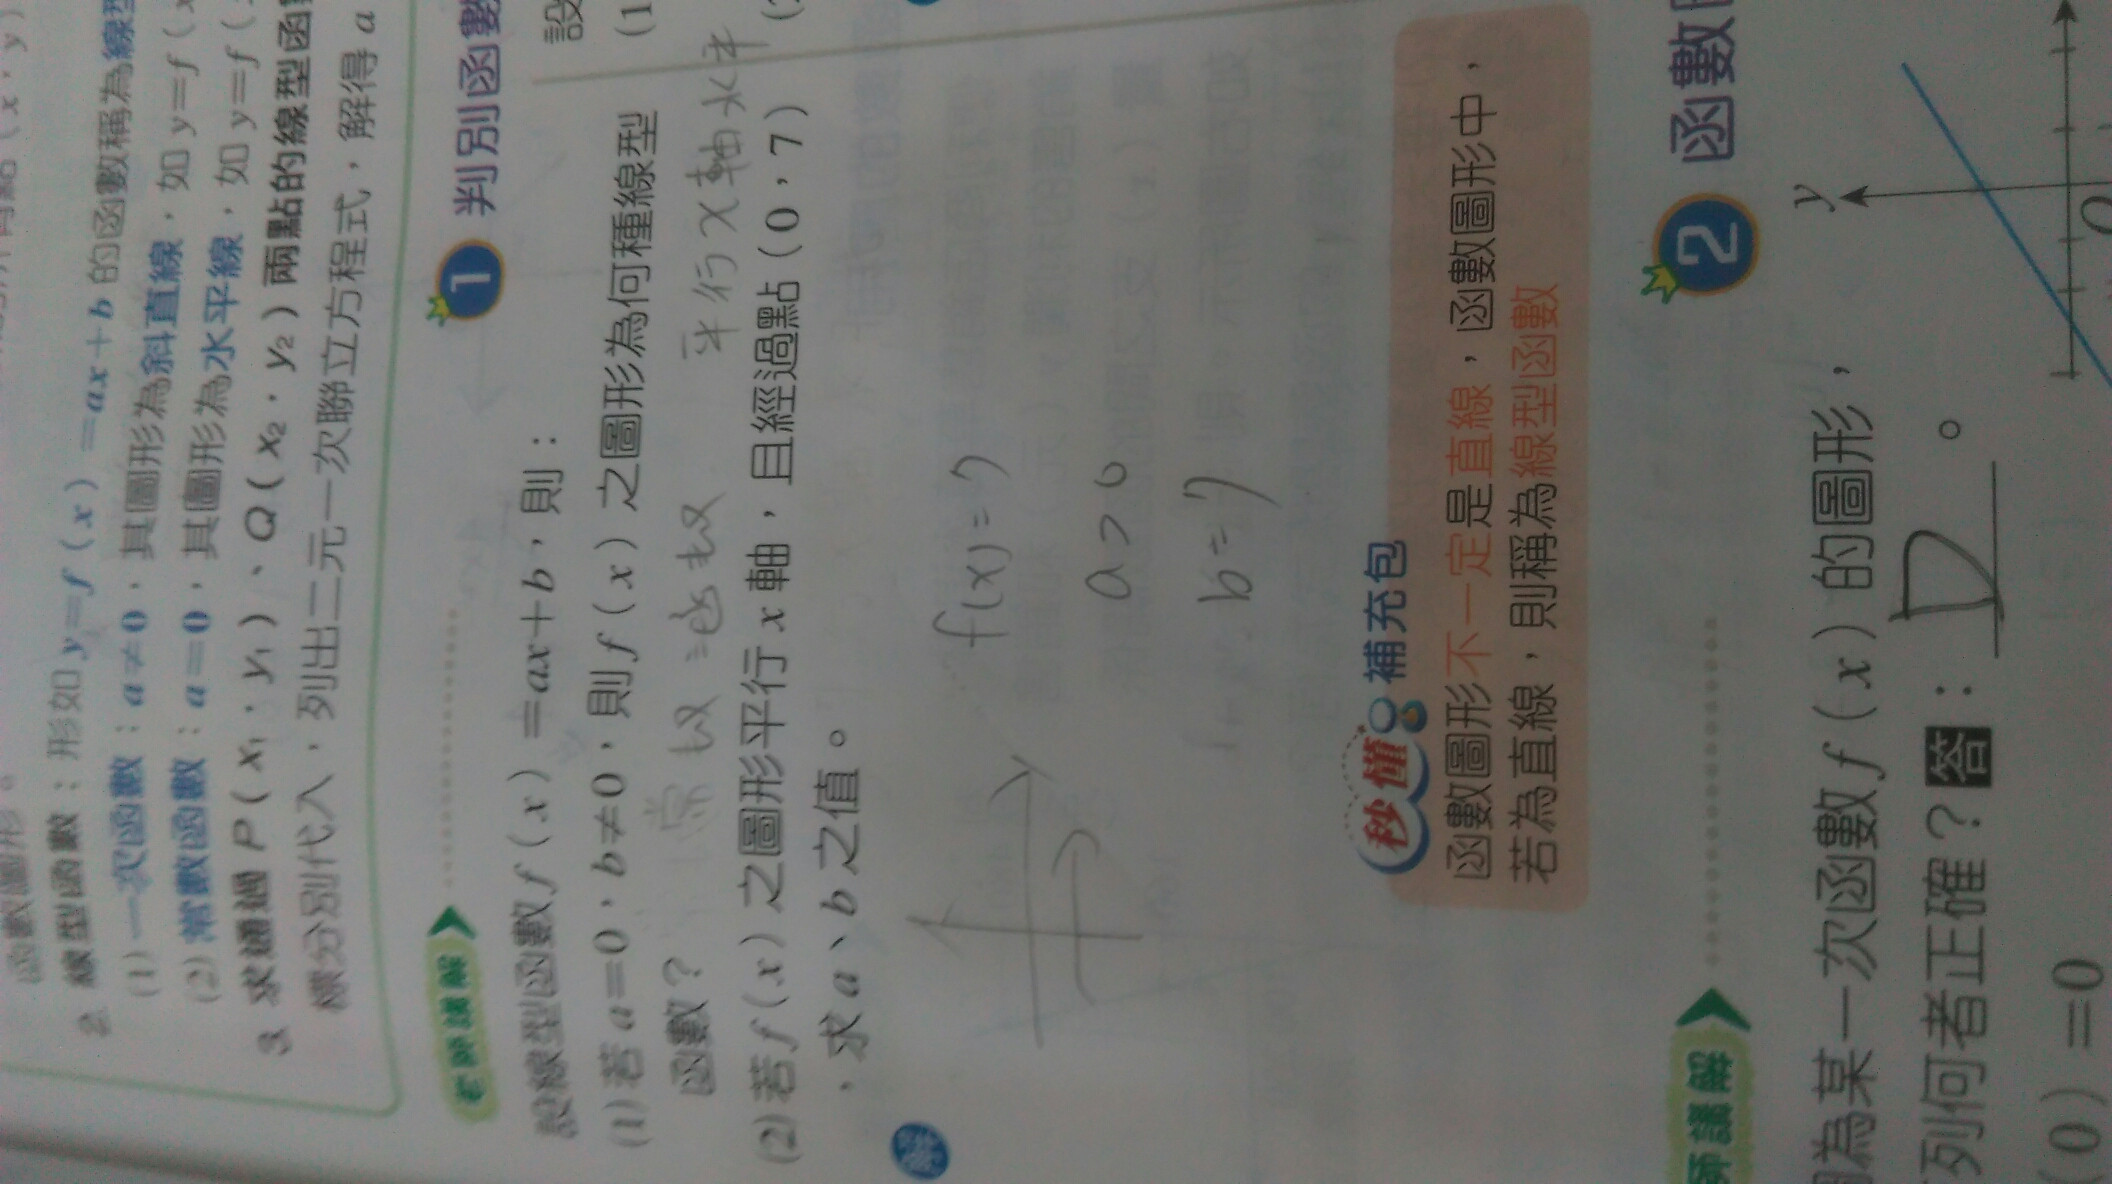 函數圖形。
2. 線型函數：形如 y=f(x)=ax+b 的函數稱為線型
(1) 一次函數：a≠0，其圖形為斜直線，如 y=f(x
(2) 常數函數：a=0，其圖形為水平線，如 y=f(
3. 求通過 P(x₁，y₁)、Q(x₂，y₂) 兩點的線型函
標分別代入，列出二元一次聯立方程式，解得 a
1 判別函數
老師講解
設線型函數 f(x)=ax+b，則：
(1) 若 a=0，b≠0，則 f(x) 之圖形為何種線型
函數？ 常數函數 平行x軸水平
(2) 若 f(x) 之圖形平行 x 軸，且經過點 (0，7)
，求 a、b 之值。
解
f(x)=7
b=7
秒懂 補充包
函數圖形不一定是直線，函數圖形中，
若為直線，則稱為線型函數
設
(1
2 函數
師講解
為某一次函數 f(x) 的圖形，
列何者正確？答：D。
(0)=0
y
O